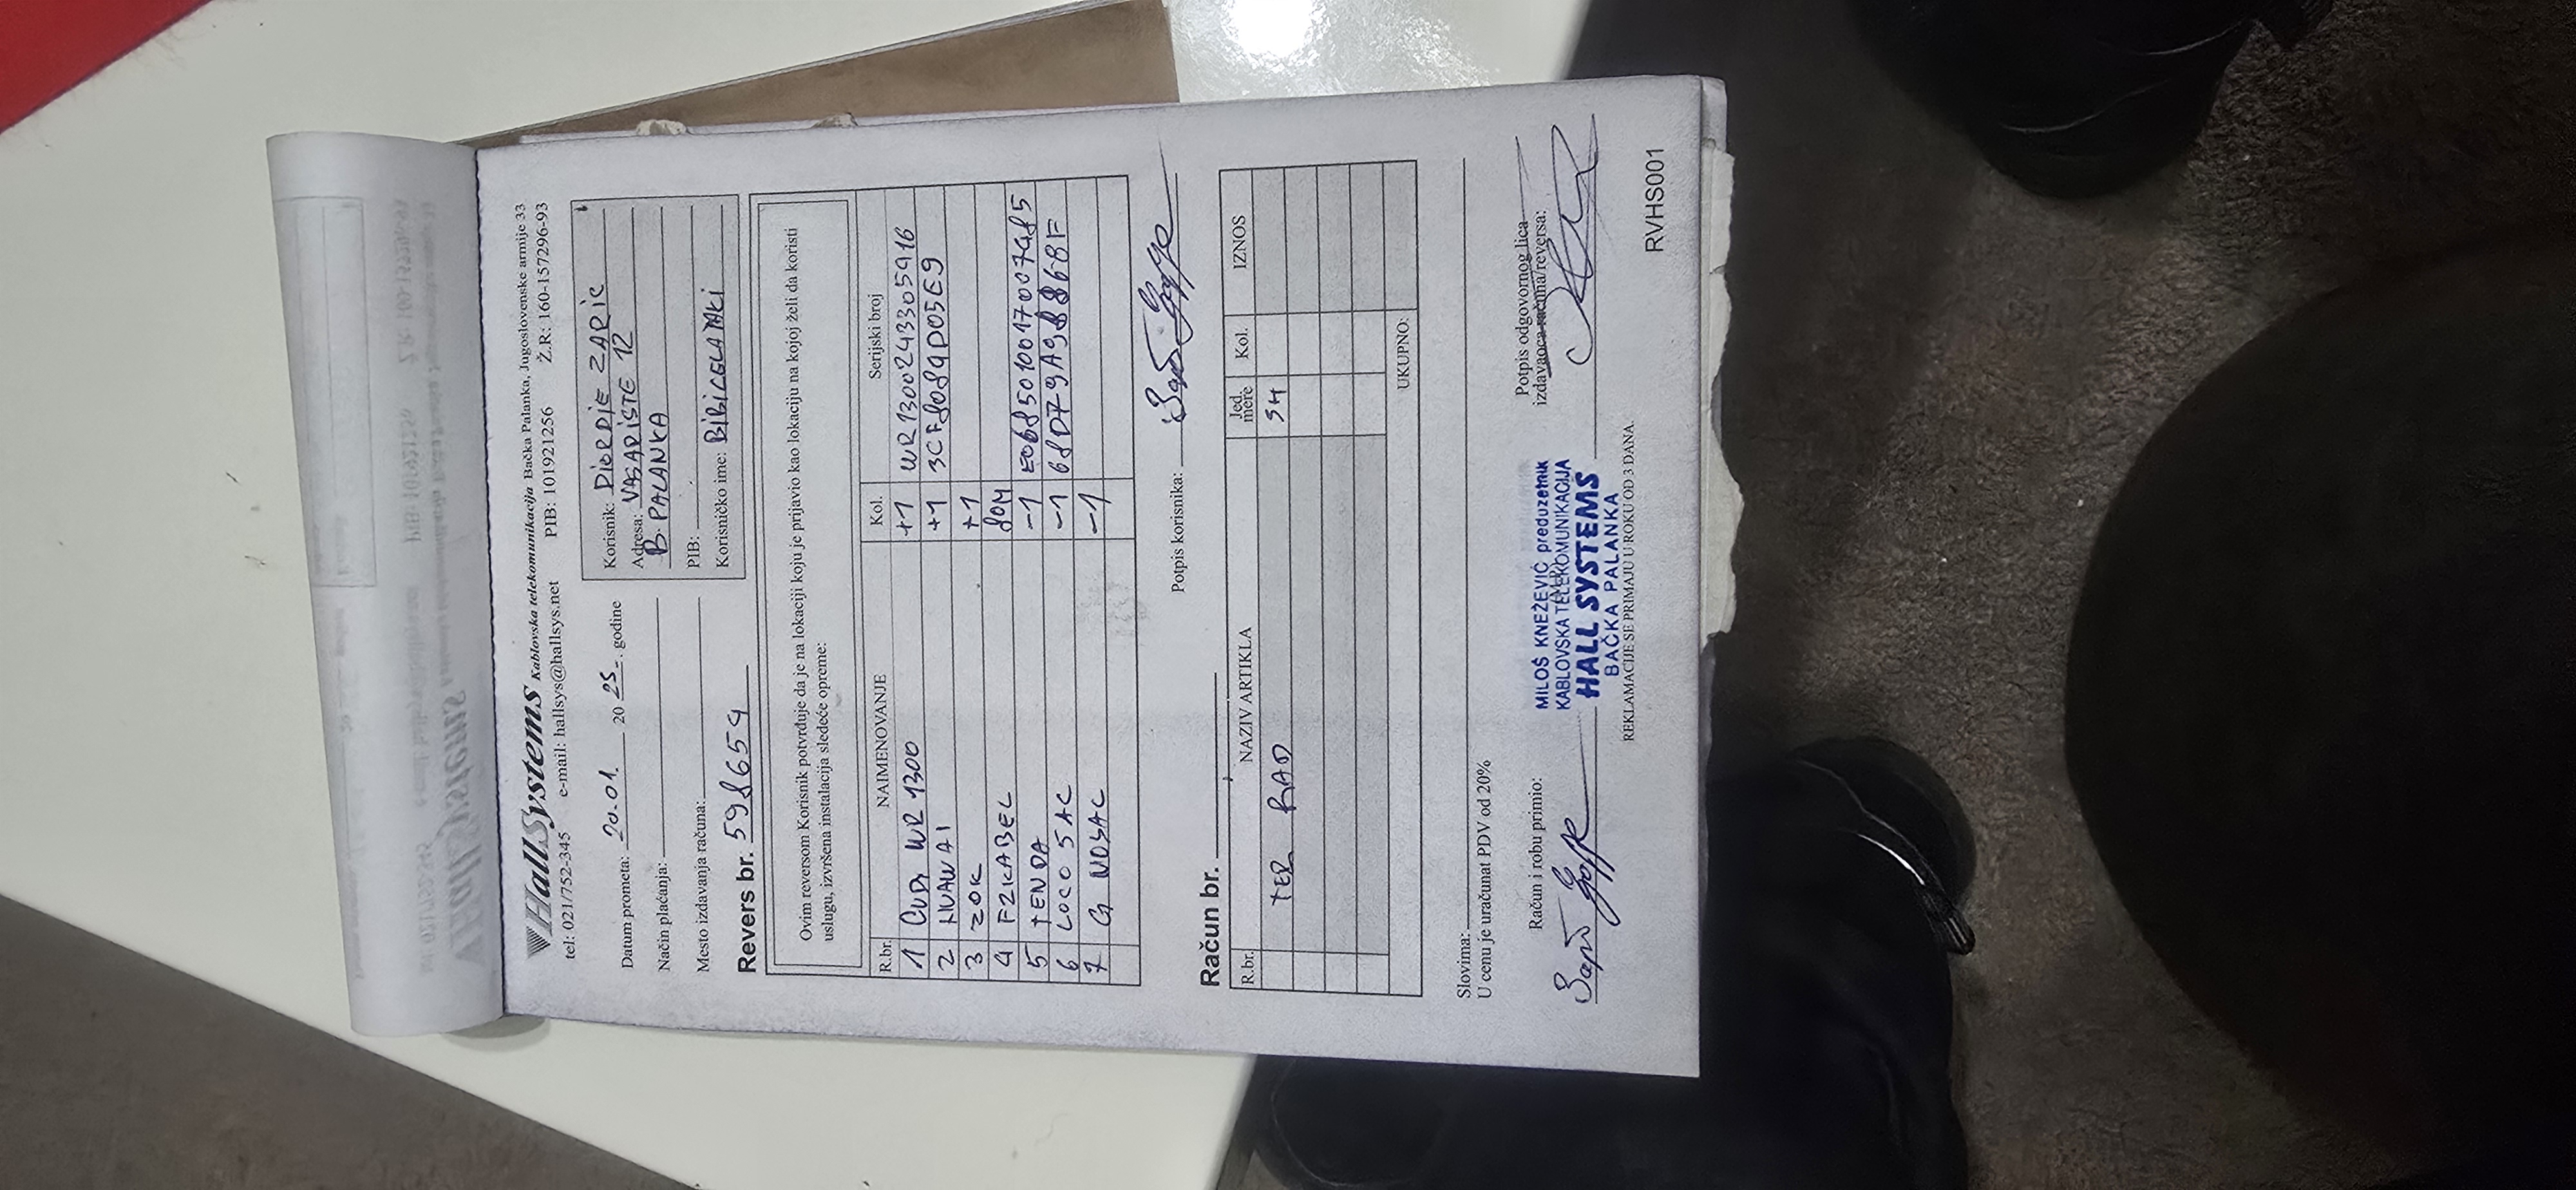 HallSystems Kablovska telekomunikacija Bačka Palanka, Jugoslovenske armije 33
tel: 021/752-345 e-mail: hallsys@hallsys.net PIB: 101921256 Ž.R.: 160-157296-93
Datum prometa: 20.01. 20 25. godine
Način plaćanja:
Mesto izdavanja računa:
Korisnik: DJORDJE ZARIC
Adresa: VASARISTE 12
B. PALANKA
PIB:
Korisničko ime:
Revers br. 598654
Ovim reversom Korisnik potvrđuje da je na lokaciji koju je prijavio kao lokaciju na kojoj želi da koristi
uslugu, izvršena instalacija sledeće opreme:
R.br. NAIMENOVANJE Kol. Serijski broj
1 CUDY WR 1300 +1 WR13002433059416
2 HUAWAI +1 3CF8084D05E9
3 ZOK +1
4 FZKABEL 80M
5 TENDA -1 E0685010017007485
6 LOCO 5 AC -1
7 G NOSAC -1
Potpis korisnika:
Račun br.
R.br. NAZIV ARTIKLA Jed. mere Kol. IZNOS
TER RAD SH
UKUPNO:
Slovima:
U cenu je uračunat PDV od 20%
Račun i robu primio:
Potpis odgovornog lica
izdavaoca računa/reversa:
MILOŠ KNEŽEVIĆ preduzetnik
KABLOVSKA TELEKOMUNIKACIJA
HALL SYSTEMS
BAČKA PALANKA
REKLAMACIJE SE PRIMAJU U ROKU OD 3 DANA.
RVHS001